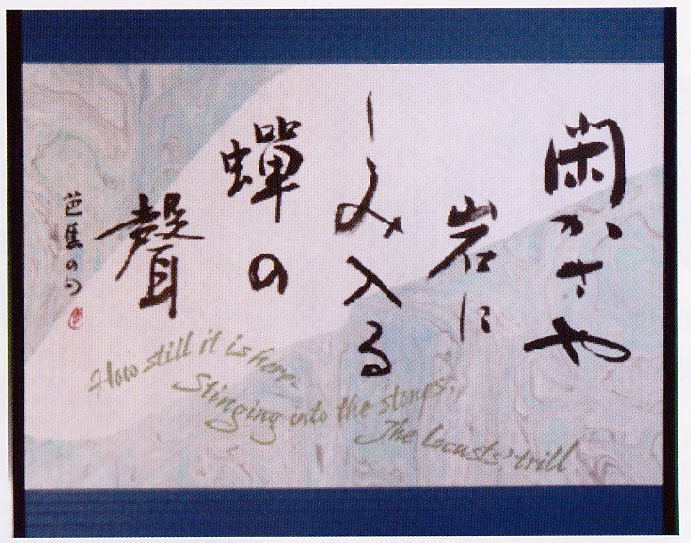 閑かさや
岩に
しみ入る
蟬の
聲
芭蕉の句
How still it is here-
Stinging into the stones,
The locusts' trill